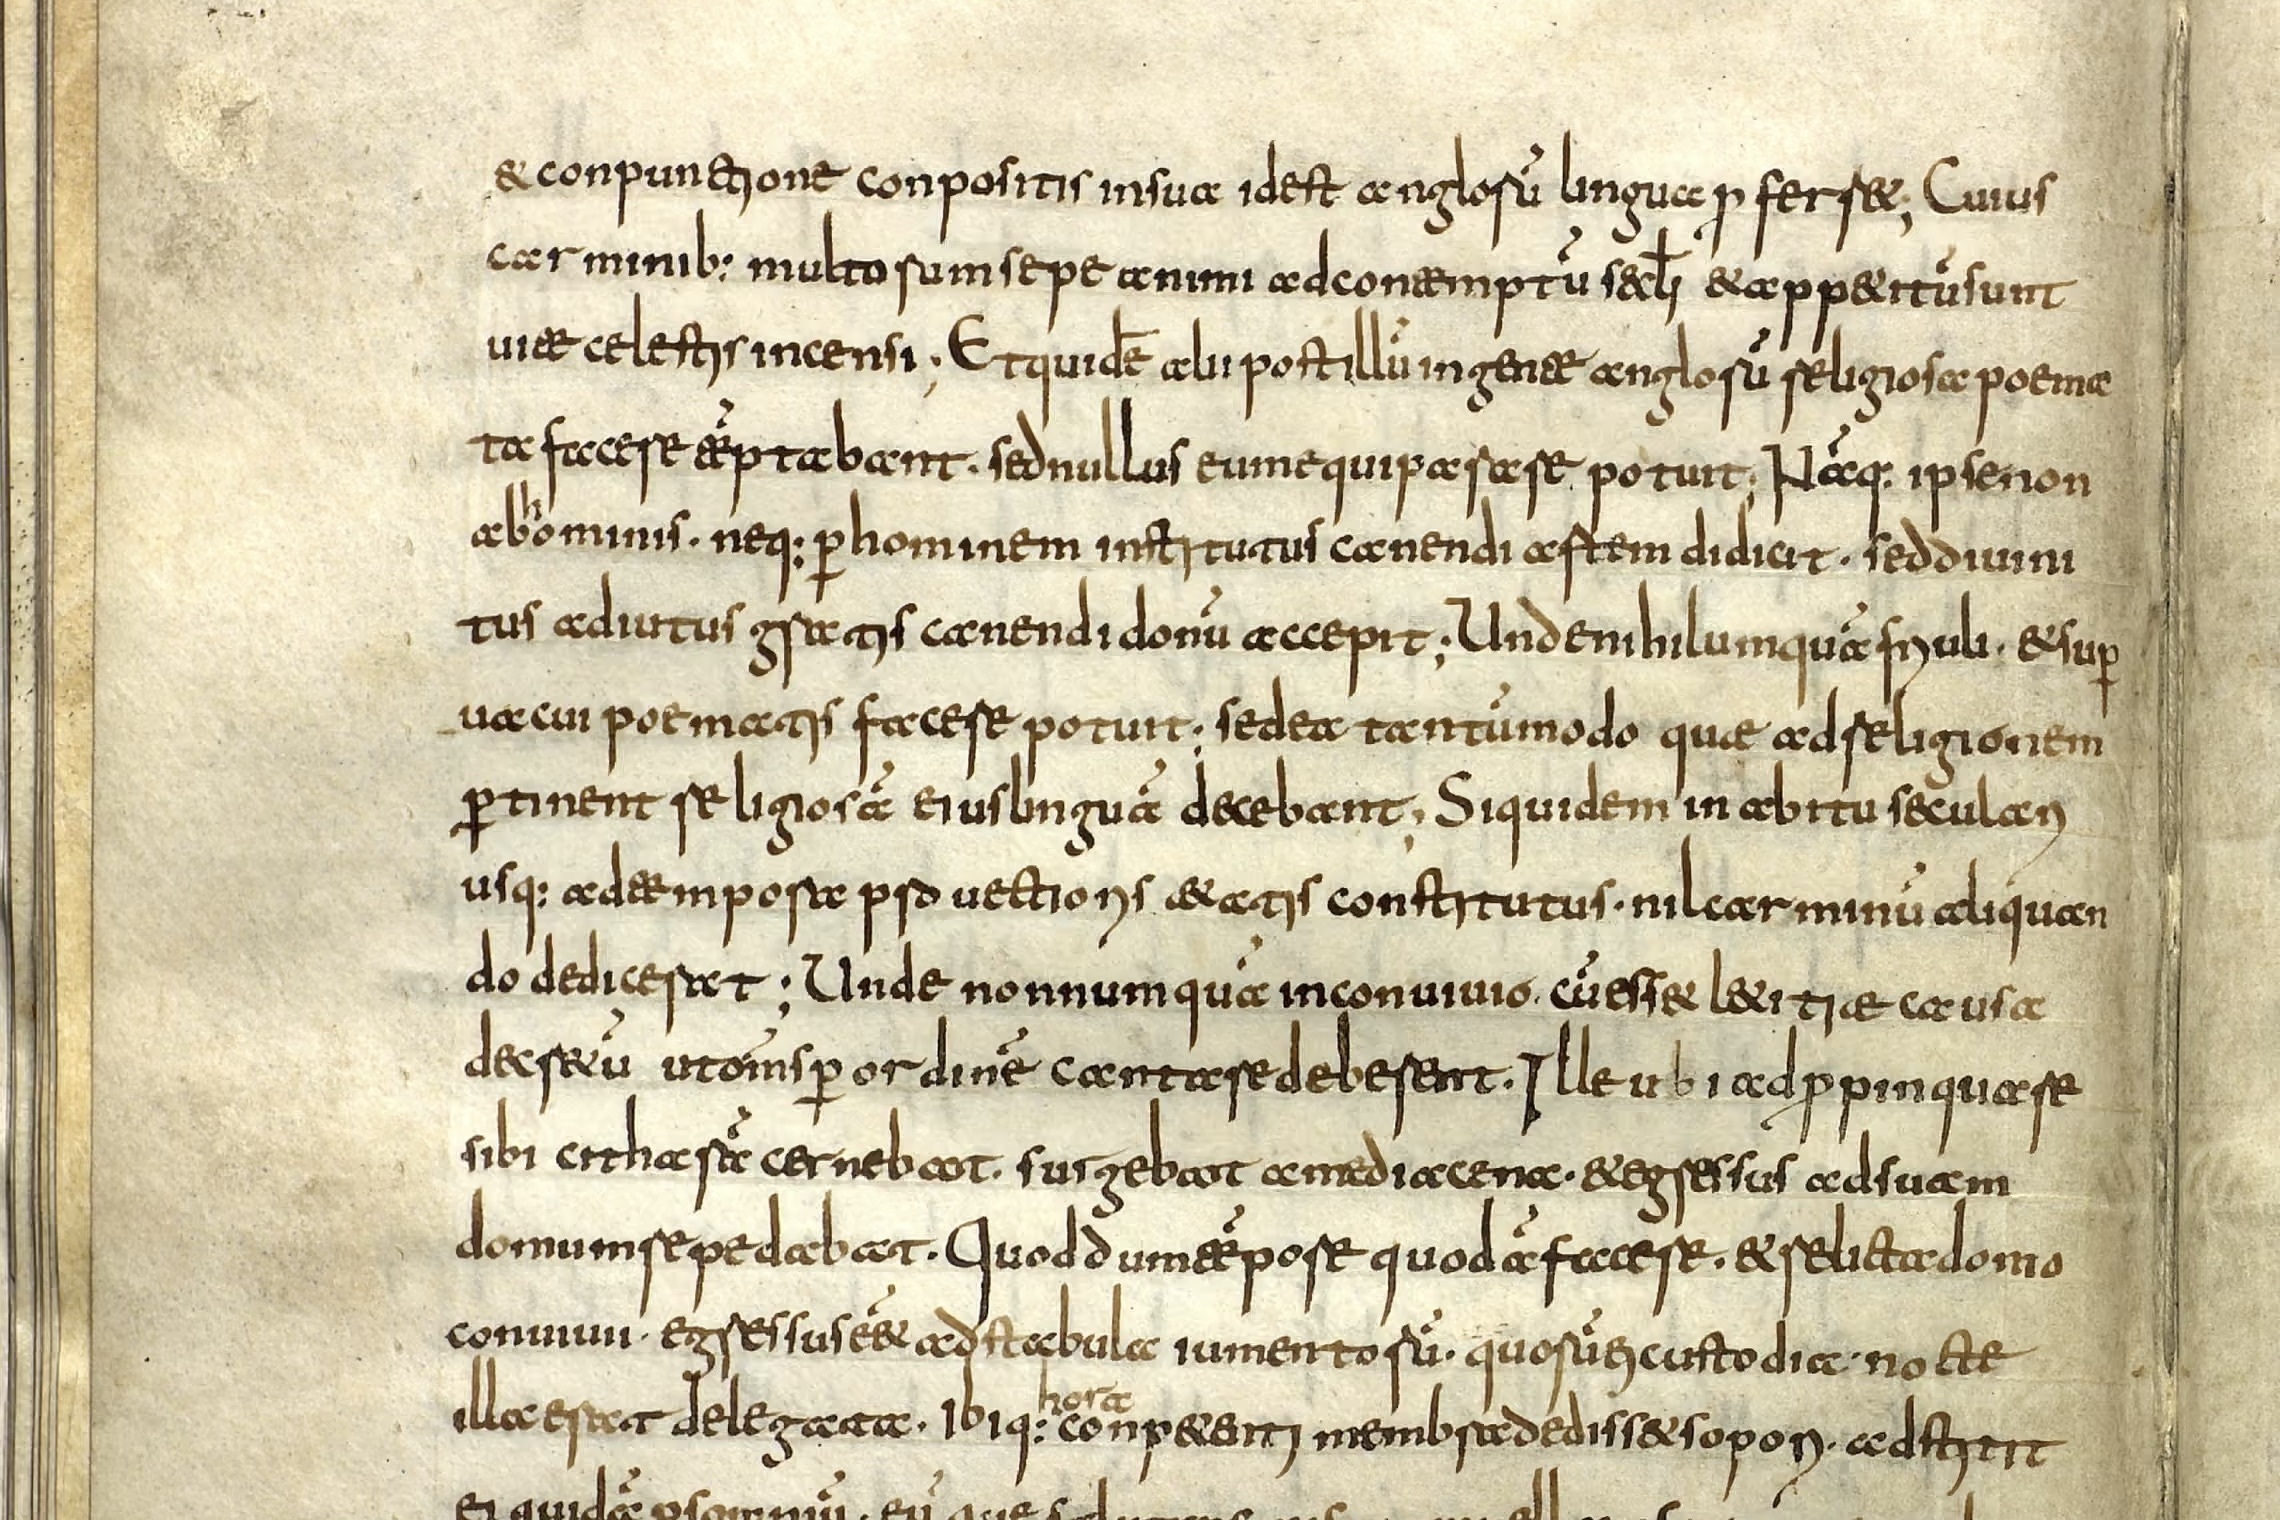 & conpunctione conpositis in sua id est anglorū lingua pferret; Cuius
carminib: multorum sepe animi ad contemptū sęcłi & appetitū sunt
uitae celestis incensi; Et quidē alii post illū in gente anglorū religiosa poema
ta facere temptabant. sed nullus eum equiparare potuit; Nāq: ipse non
ab hominis. neq: p hominem institutus canendi artem didicit. sed diuini
tus adiutus gratis canendi donū accepit; Unde nihil umquā friuoli. & sup
uacui poematis facere potuit; sed ea tantūmodo quae ad religionem
ptinent religiosā eius linguā decebant; Siquidem in abitu seculari
usq: ad tempora prouectioris aetatis constitutus. nil carminū aliquan
do dedicerat; Unde nonnumquā in conuiuio. cū esset letitiae causa
decretū ut om̄s p ordinē cantare deberent. Ille ubi adppinquare
sibi citharā cernebat. surgebat a media cena. & egressus ad suam
domum repedabat. Quod dum tēpore quodā faceret. & relicta domo
conuiuii. egressus eēt ad stabula iumentorū. quorū ei custodia nocte
illa erat delegata. Ibiq: hora conpetenti membra dedisset sopori. adstitit
ei quidā p somniū. eū que